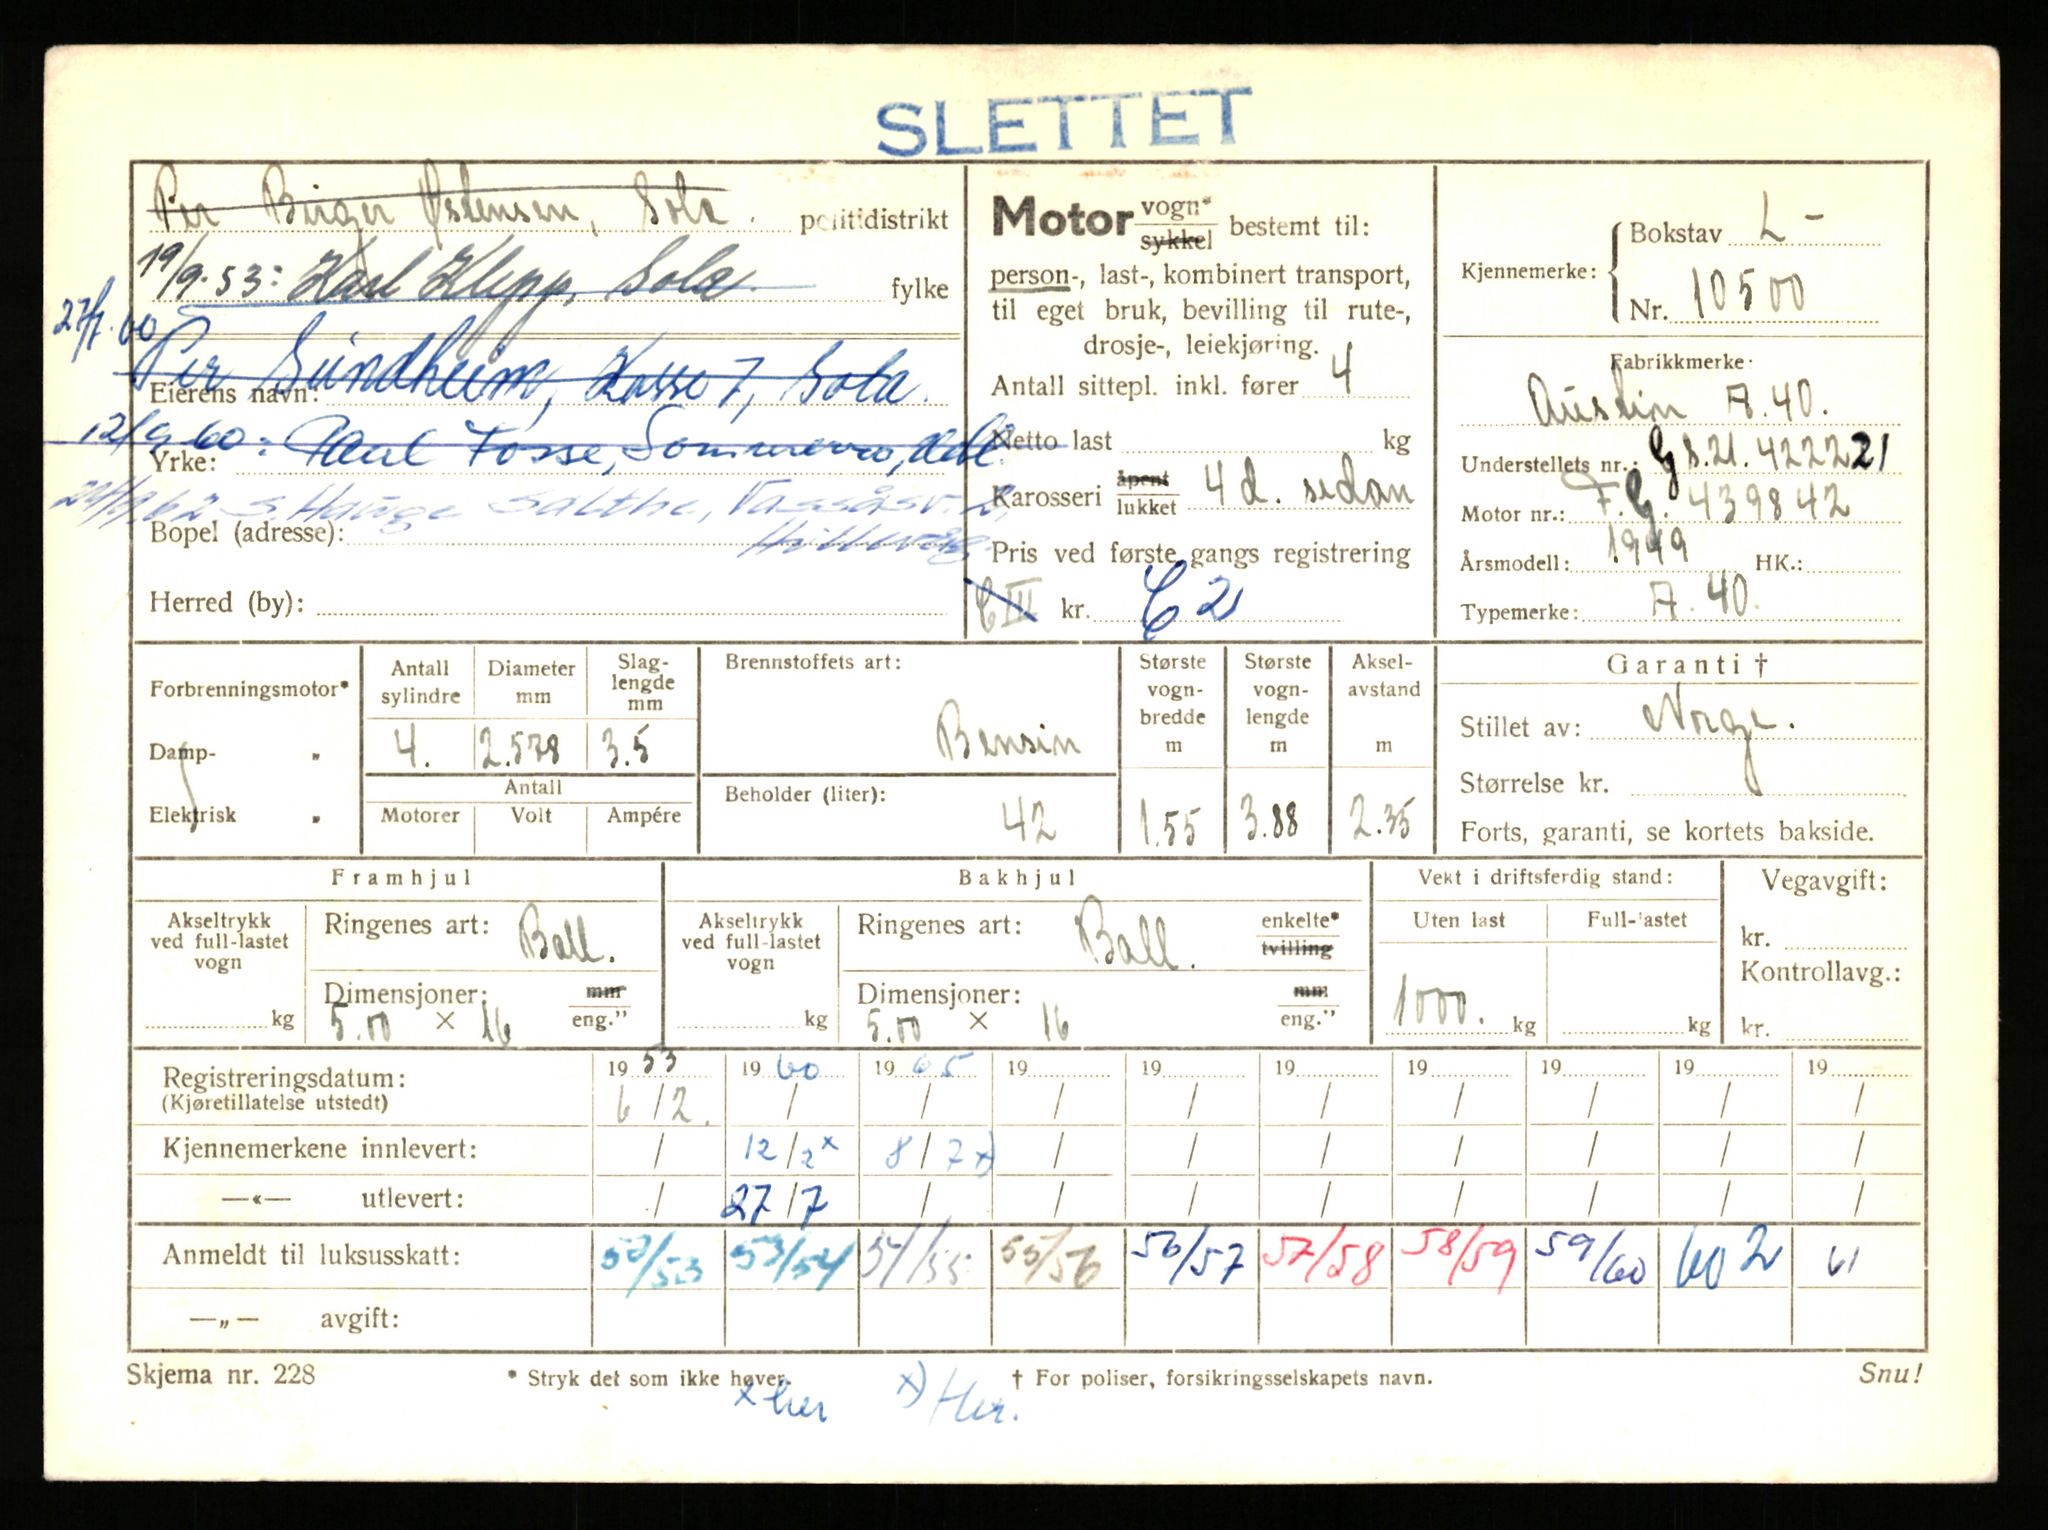 SLETTET
Per Birger Østensen, Sola. politidistrikt
19/9-53: Karl Klepp, Sola. fylke
27/7.60
Per Sundheim, Kasse 7, Sola.
Eierens navn:
12/9 60: Paul Fosse, Sommerro,
Yrke:
62 S. Hauge Salthe, 2,
Bopel (adresse): Hillevåg
Herred (by):
Motor vogn* sykkel bestemt til:
person-, last-, kombinert transport,
til eget bruk, bevilling til rute-,
drosje-, leiekjøring.
Antall sittepl. inkl. fører 4
Netto last kg
Karosseri åpent lukket 4 d. sedan
Pris ved første gangs registrering
C III kr. C 2
Kjennemerke: Bokstav L-
Nr. 10500
Fabrikkmerke:
Austin A.40.
Understellets nr.: G S.21. 422221
Motor nr.: F.G. 439842
Årsmodell: 1949 HK.:
Typemerke: A.40.
Forbrenningsmotor*
Damp- „
Elektrisk „
Antall sylindre 4.
Diameter mm 2.578
Slag-lengde mm 3.5
Antall
Motorer Volt Ampére
Brennstoffets art:
Bensin
Beholder (liter):
42
Største vogn-bredde m 1.55
Største vogn-lengde m 3.88
Aksel-avstand m 2.35
Garanti †
Stillet av: Norge.
Størrelse kr.
Forts, garanti, se kortets bakside.
Framhjul
Akseltrykk ved full-lastet vogn kg
Ringenes art: Ball.
Dimensjoner: mm eng.”
5.00 × 16
Bakhjul
Akseltrykk ved full-lastet vogn kg
Ringenes art: Ball. enkelte* tvilling
Dimensjoner: mm eng.”
5.00 × 16
Vekt i driftsferdig stand:
Uten last Full-lastet
1000. kg kg
Vegavgift:
kr.
Kontrollavg.:
kr.
Registreringsdatum: 1953 1960 1965 19 19 19 19 19 19 19
(Kjøretillatelse utstedt) 6/2. / / / / / / / / /
Kjennemerkene innlevert: / 12/2× 8/7×) / / / / / / /
—«— utlevert: / 27/7 / / / / / / / /
Anmeldt til luksusskatt: 52/53 53/54 54/55 55/56 56/57 57/58 58/59 59/60 60 2 61
—„— avgift:
Skjema nr. 228 * Stryk det som ikke høver. † For poliser, forsikringsselskapets navn. Snu!
× her ×) Her.